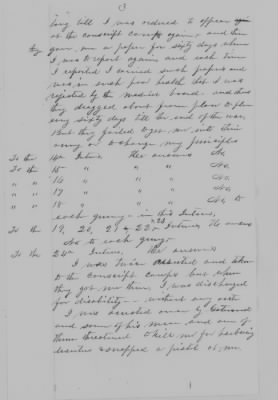 3
long till I was ordered to appear again
at the conscript camp again, and then
they gave me a paper for sixty days when
I was to report again, and each time
I reported I carried such papers and
was in such poor health that I was
rejected by the medical board. and thus
they dragged about from place to place
every sixty days till the end of the war.
But they failed to get me into their
army or to change my principles
To the 14th Inters, the answer is No
To the 15 " " " No,
" " 16 " " " No,
" " 17 " " " No,
" " 18 " " " No to
each query - in this Inters,
To the 19, 20, 21 & 22 & 23 Inters, the answer
No to each query -
To the 24th Inters, the answer is
I was twice arrested and taken
to the conscript camps but when
they got me there I was discharged
for disability - without any oath
I was arrested once by
and some of his men and one of
them threatened to kill me for harboring
deserters & snapped a pistol at me.